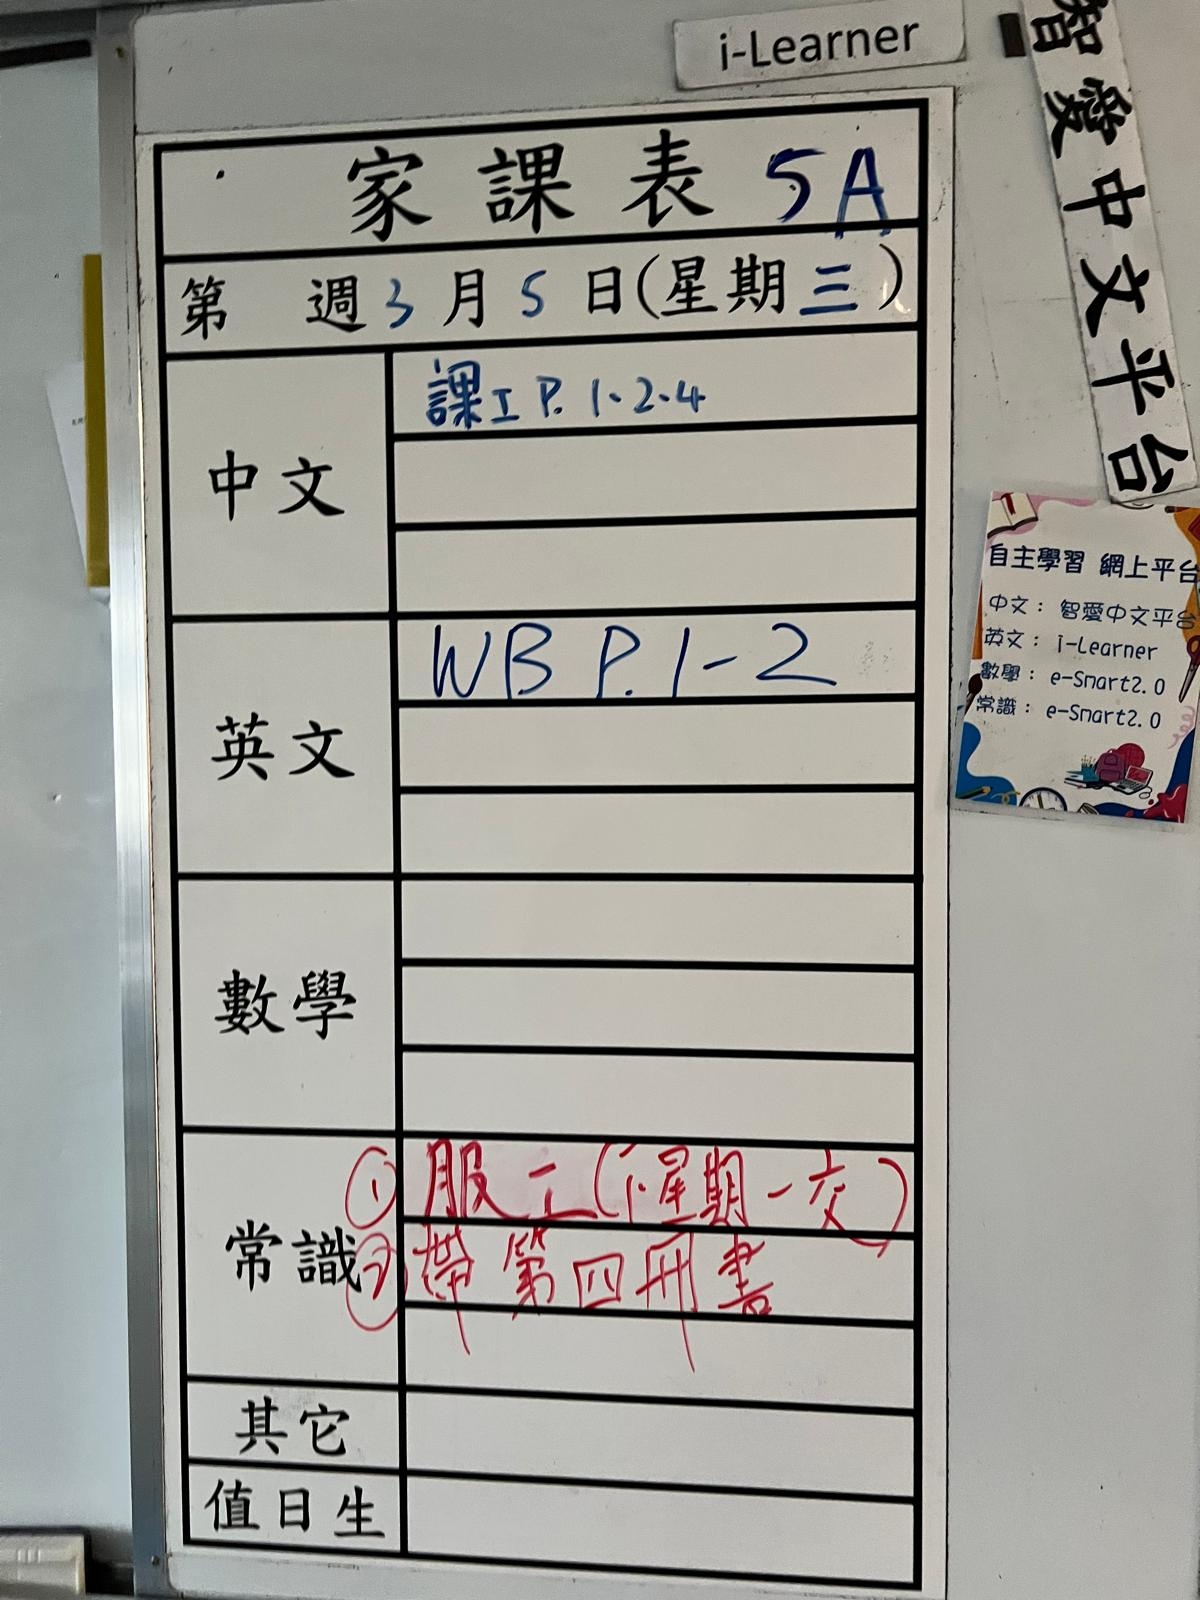 i-Learner
智愛中文平台
家課表 5A
第 週 3 月 5 日 (星期三)
中文
課工 P. 1.2.4
英文
WB P. 1-2
數學
常識
① (下星期一交)
② 帶第四冊書
其它
值日生
自主學習 網上平台
中文： 智愛中文平台
英文： i-Learner
數學： e-Smart2.0
常識： e-Smart2.0